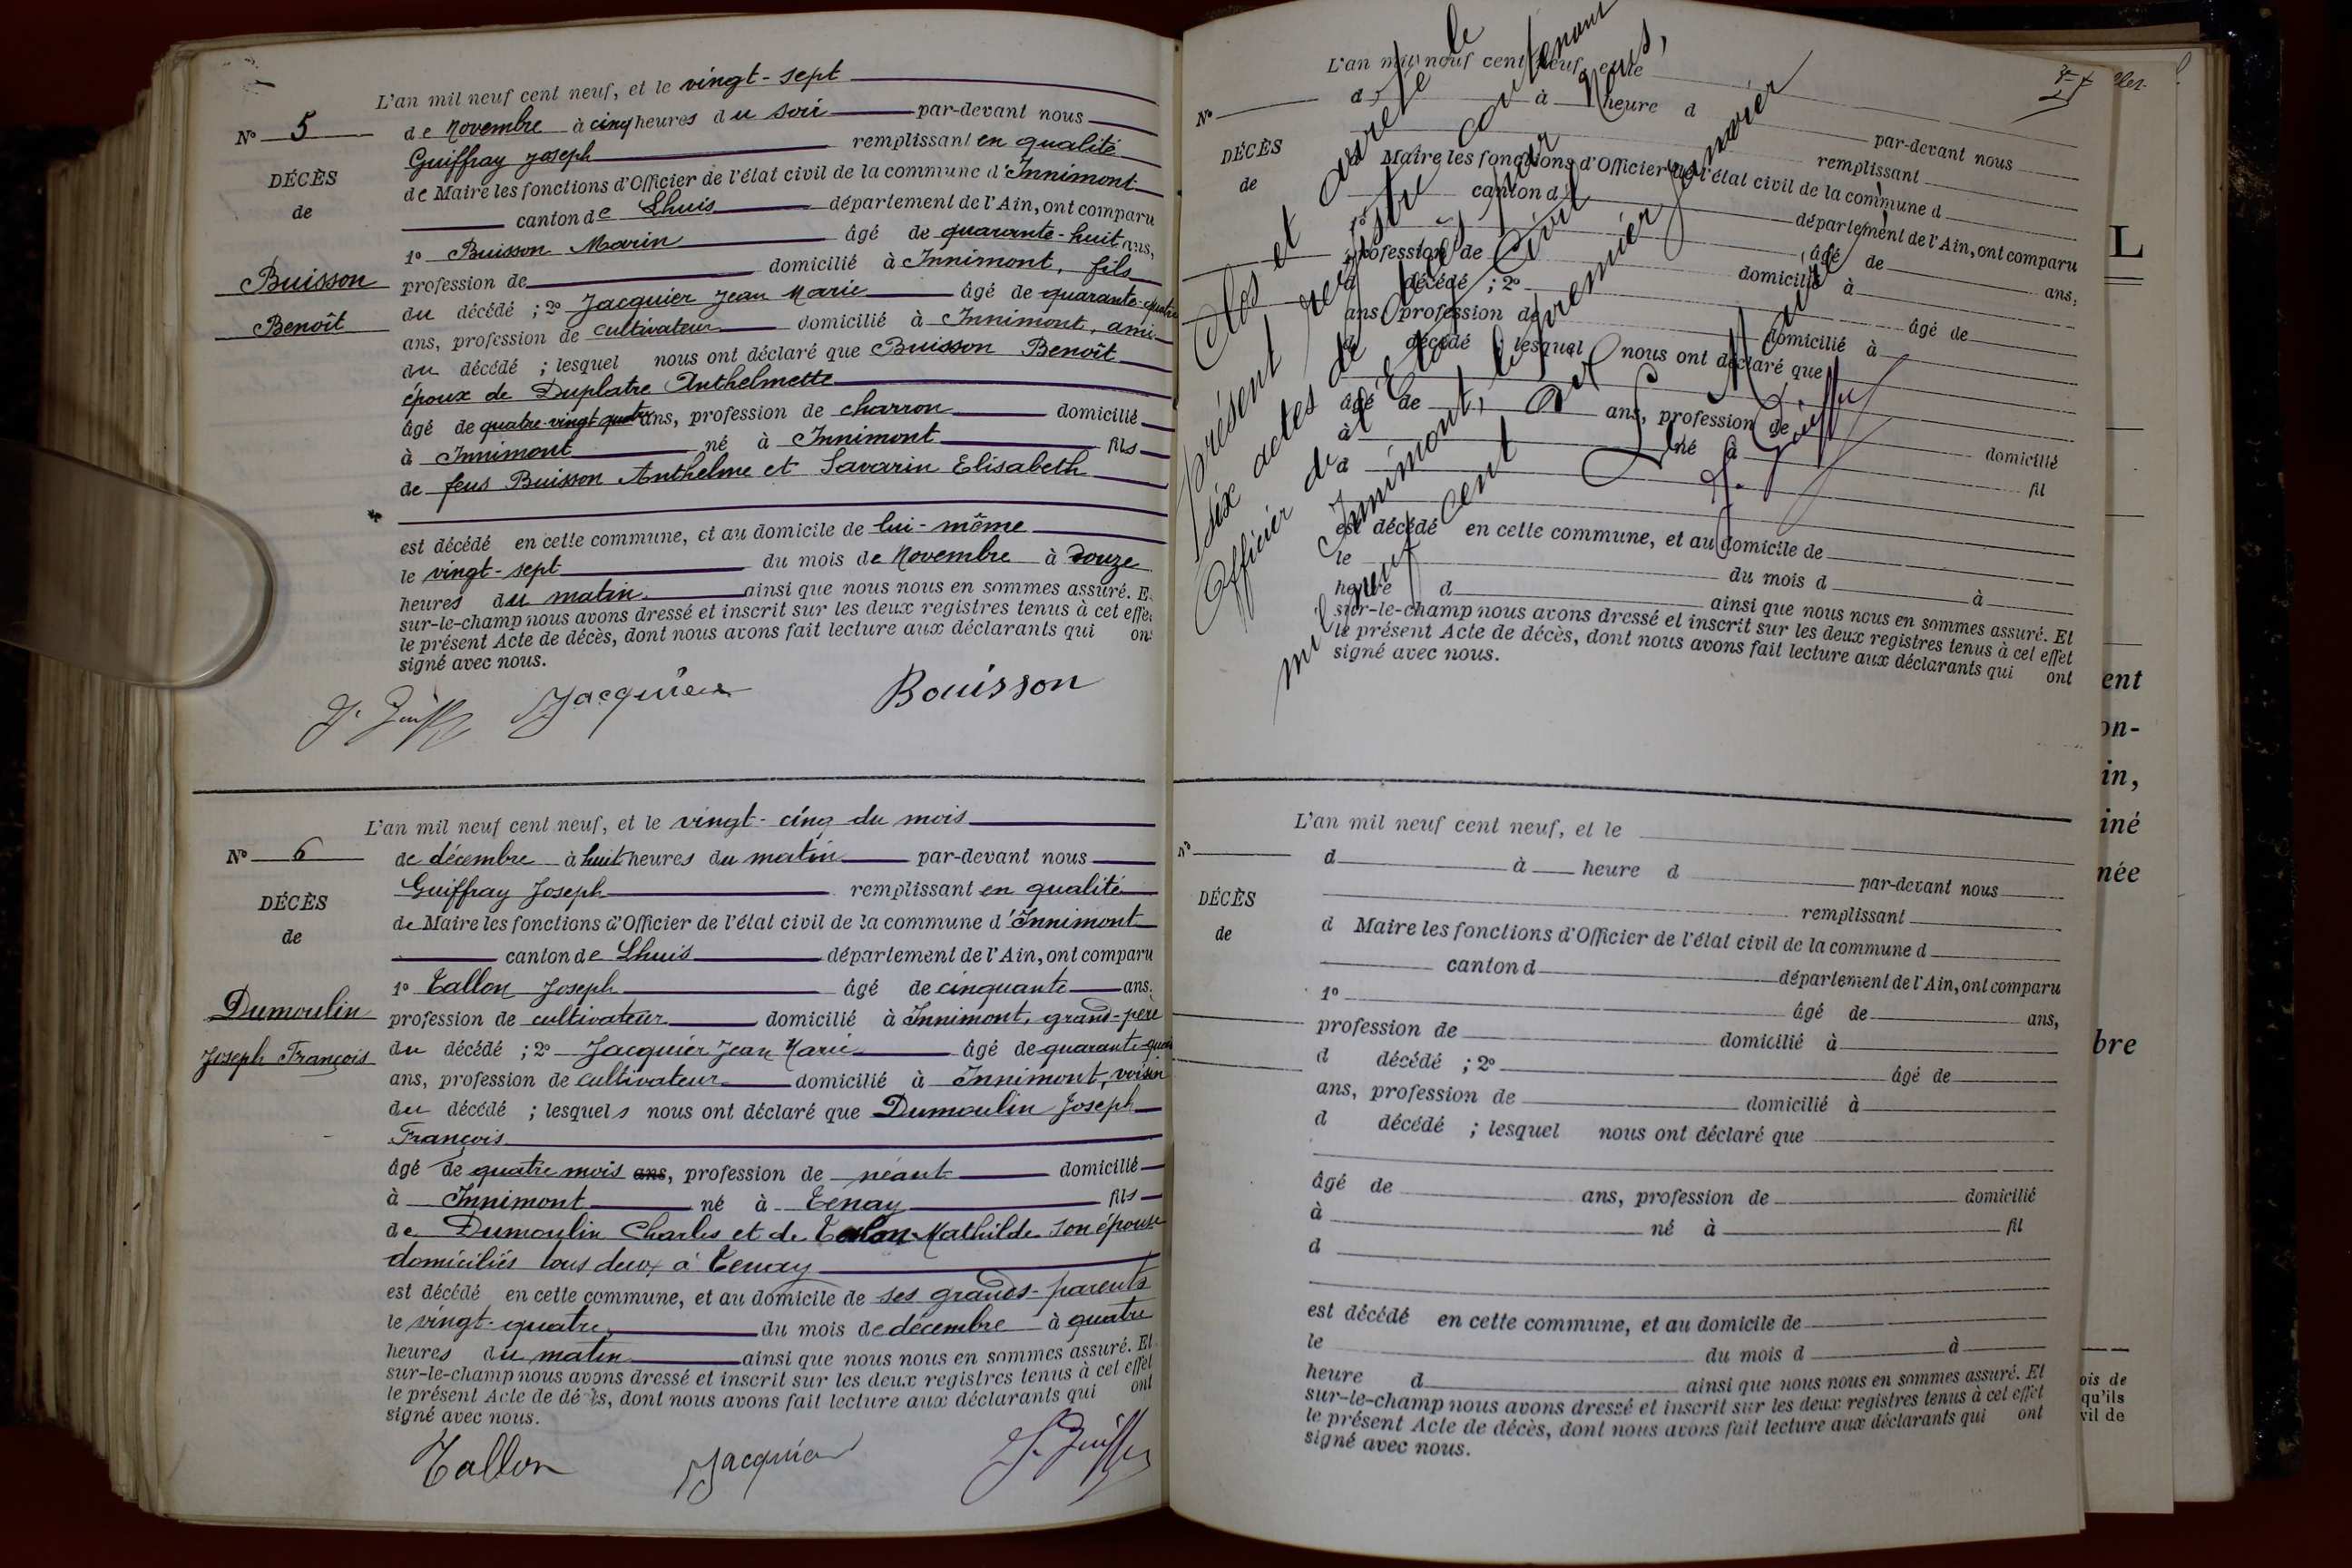 L'an mil neuf cent neuf, et le vingt-sept
N° 5
de Novembre à cinq heures du soir par-devant nous
Guiffray Joseph remplissant en qualité
DÉCÈS
de Maire les fonctions d'Officier de l'état civil de la commune d'Innimont
de
canton de Lhuis département de l'Ain, ont comparu
1° Buisson Marin âgé de quarante-huit ans,
Buisson
profession de domicilié à Innimont, fils
du décédé ; 2° Jacquier Jean Marie âgé de quarante-quatre
Benoît
ans, profession de cultivateur domicilié à Innimont, ami
du décédé ; lesquel nous ont déclaré que Buisson Benoît
époux de Duplatre Anthelmette
âgé de quatre-vingt-quatre ans, profession de charron domicilié
à Innimont né à Innimont fils
de feus Buisson Anthelme et Savarin Elisabeth
est décédé en cette commune, et au domicile de lui-même
le vingt-sept du mois de Novembre à douze
heures du matin ainsi que nous nous en sommes assuré. E
sur-le-champ nous avons dressé et inscrit sur les deux registres tenus à cet effe
le présent Acte de décès, dont nous avons fait lecture aux déclarants qui on
signé avec nous.
Jacquier Bouisson
L'an mil neuf cent neuf, et le vingt-cinq du mois
N° 6
de décembre à huit heures du matin par-devant nous
Guiffray Joseph remplissant en qualité
DÉCÈS
de Maire les fonctions d'Officier de l'état civil de la commune d'Innimont
de
canton de Lhuis département de l'Ain, ont comparu
1° Tallon Joseph âgé de cinquante ans,
Dumoulin
profession de cultivateur domicilié à Innimont, grand-père
Joseph François
du décédé ; 2° Jacquier Jean Marie âgé de quarante-qua
ans, profession de cultivateur domicilié à Innimont, voisin
du décédé ; lesquels nous ont déclaré que Dumoulin Joseph
François
âgé de quatre mois ans, profession de néant domicilié
à Innimont né à Tenay fils
de Dumoulin Charles et de Talon Mathilde son épouse
domiciliés tous deux à Tenay
est décédé en cette commune, et au domicile de ses grands-parents
le vingt-quatre du mois de décembre à quatre
heures du matin ainsi que nous nous en sommes assuré. Et
sur-le-champ nous avons dressé et inscrit sur les deux registres tenus à cet effet
le présent Acte de décès, dont nous avons fait lecture aux déclarants qui ont
signé avec nous.
Tallon Jacquier
L'an mil neuf cent neuf, et le
N°
d à heure d par-devant nous
DÉCÈS
remplissant
de
Maire les fonctions d'Officier de l'état civil de la commune d
canton d département de l'Ain, ont comparu
1° âgé de ans,
profession de domicilié à
d décédé ; 2° âgé de
ans, profession de domicilié à
d décédé ; lesquel nous ont déclaré que
âgé de ans, profession de domicilié
à né à fil
d
est décédé en cette commune, et au domicile de
le du mois d à
heure d ainsi que nous nous en sommes assuré. Et
sur-le-champ nous avons dressé et inscrit sur les deux registres tenus à cet effet
le présent Acte de décès, dont nous avons fait lecture aux déclarants qui ont
signé avec nous.
Clos et arrêté le
présent registre contenant
six actes de décès par Nous,
Officier de l'Etat Civil
d'Innimont, le premier Janvier
mil neuf cent dix
Le Maire
L'an mil neuf cent neuf, et le
N°
d à heure d par-devant nous
DÉCÈS
remplissant
de
d Maire les fonctions d'Officier de l'état civil de la commune d
canton d département de l'Ain, ont comparu
1° âgé de ans,
profession de domicilié à
d décédé ; 2° âgé de
ans, profession de domicilié à
d décédé ; lesquel nous ont déclaré que
âgé de ans, profession de domicilié
à né à fil
d
est décédé en cette commune, et au domicile de
le du mois d à
heure d ainsi que nous nous en sommes assuré. Et
sur-le-champ nous avons dressé et inscrit sur les deux registres tenus à cet effet
le présent Acte de décès, dont nous avons fait lecture aux déclarants qui ont
signé avec nous.
L
ent
on-
in,
iné
née
bre
ois de
qu'ils
vil de